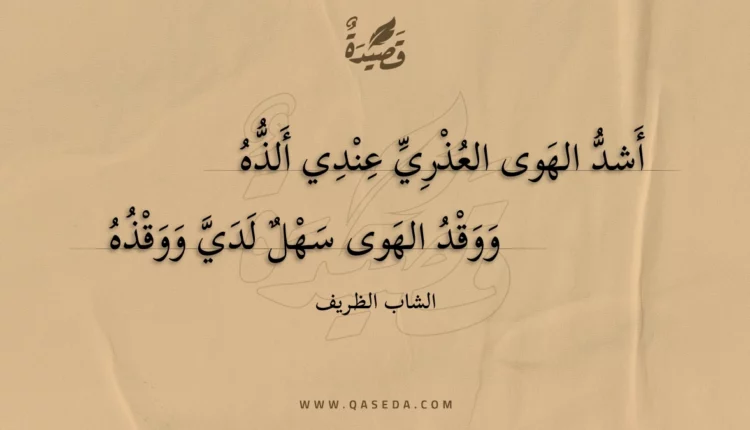 قَصِيدَةٌ
أَشدُّ الهَوى العُذْرِيِّ عِنْدِي أَلذُّهُ
وَوَقْدُ الهَوى سَهْلٌ لَدَيَّ وَوَقْذُهُ
الشاب الظريف
WWW.QASEDA.COM